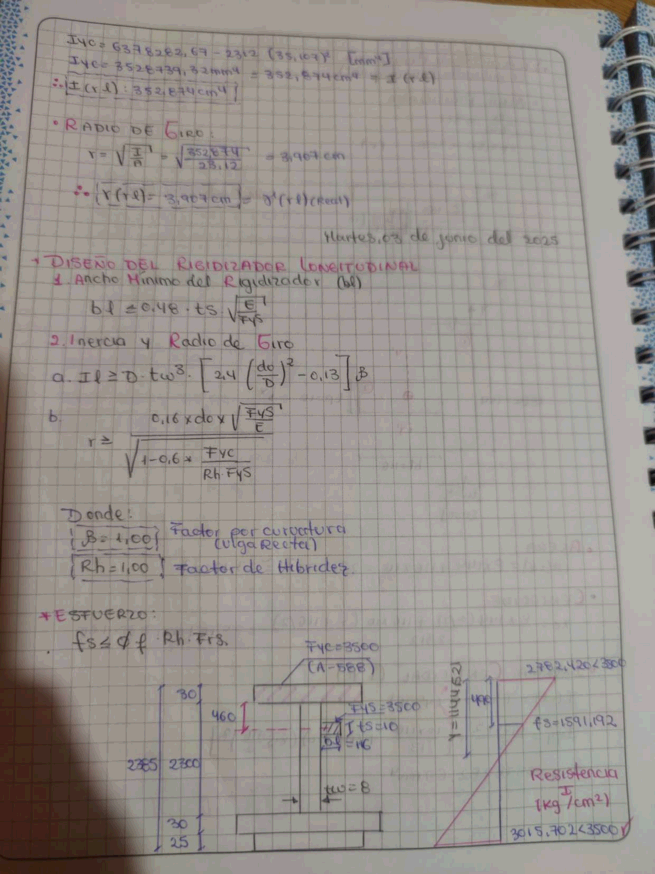 Iyc = 6378282,67 - 2312 (35,107)² [mm⁴]
Iyc = 3528739,32 mm⁴ = 352,874 cm⁴ = I (rl)
∴ I(rl) = 352,874 cm⁴
• RADIO DE GIRO:
r = √(I/A) = √(352,874/23,12) = 3,907 cm
∴ r(rl) = 3,907 cm = r (rl) (Real)
Martes, 03 de junio del 2025
* DISEÑO DEL RIGIDIZADOR LONGITUDINAL
1. Ancho Mínimo del Rigidizador (bl)
bl ≤ 0,48 · ts √(E/Fys)
2. Inercia y Radio de Giro
a. Il ≥ D · tw³ · [2,4 (do/D)² - 0,13] β
b. r ≥ 0,16 × do × √(Fys/E) / √(1 - 0,6 × Fyc/(Rh · Fys))
Donde:
β = 1,00 Factor por curvatura
(Viga Recta)
Rh = 1,00 Factor de Hibridez.
* ESFUERZO:
fs ≤ Øf · Rh · Frs.
Fyc = 3500
(A-588)
2782,420 < 3500
30
460
Fys = 3500
I ts = 10
= 116
fs = 1591,192
2385
2300
tw = 8
Resistencia
(kg/cm²)
30
25
3015,702 < 3500 ✓